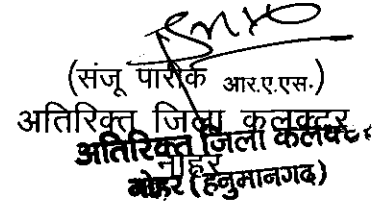 (संजू पारीक आर.ए.एस.)
अतिरिक्त जिला कलक्टर
अतिरिक्त जिला कलक्टर
नोहर
नोहर (हनुमानगढ़)